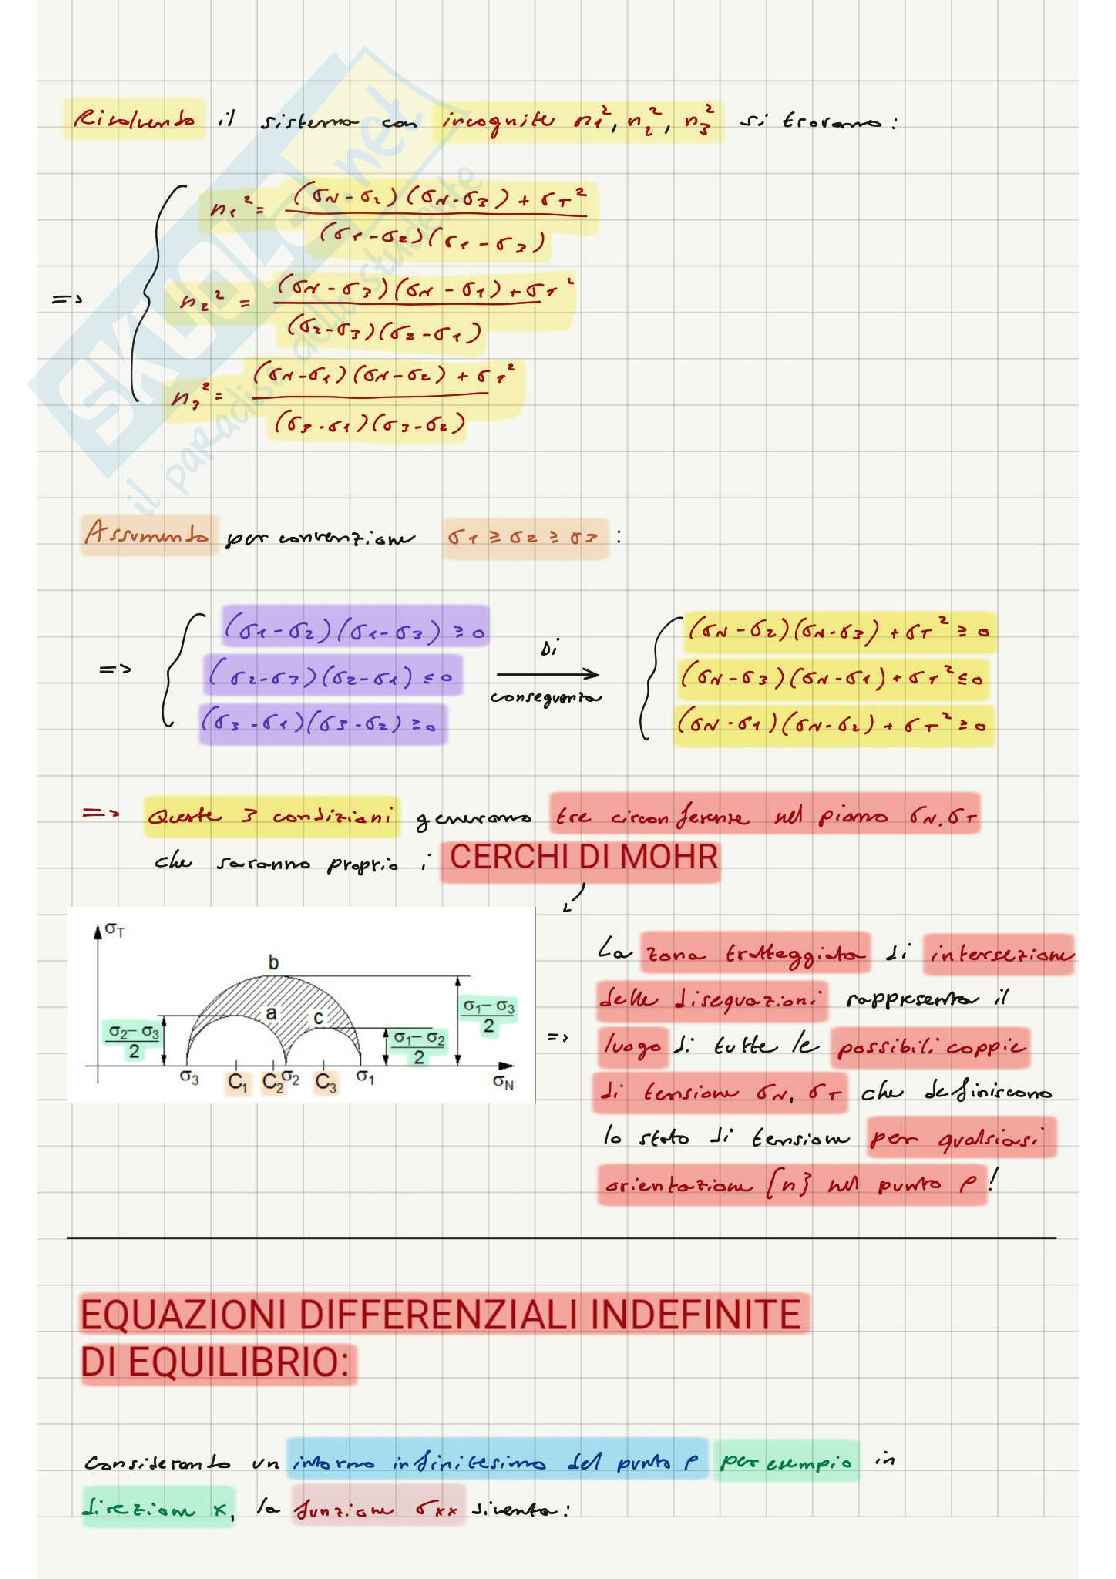 Risolvendo il sistema con incognite n₁², n₂², n₃² si trovano:
n₁² = (σN-σ2)(σN-σ3)+σT² / (σ1-σ2)(σ1-σ3)
=> n₂² = (σN-σ3)(σN-σ1)+σT² / (σ2-σ3)(σ2-σ1)
n₃² = (σN-σ1)(σN-σ2)+σT² / (σ3-σ1)(σ3-σ2)
SKUOLA.net
il paradiso dello studente
Assumendo per convenzione σ1 ≥ σ2 ≥ σ3 :
(σ1-σ2)(σ1-σ3) ≥ 0 (σN-σ2)(σN-σ3)+σT² ≥ 0
=> (σ2-σ3)(σ2-σ1) ≤ 0 di conseguenza (σN-σ3)(σN-σ1)+σT² ≤ 0
(σ3-σ1)(σ3-σ2) ≥ 0 (σN-σ1)(σN-σ2)+σT² ≥ 0
=> Queste 3 condizioni generano tre circonferenze nel piano σN, σT
che saranno proprio i CERCHI DI MOHR
σT
b
a
c
σ2-σ3 / 2
σ1-σ2 / 2
σ1-σ3 / 2
σ3 C1 C2 σ2 C3 σ1 σN
La zona tratteggiata di intersezione
delle disequazioni rappresenta il
=> luogo di tutte le possibili coppie
di tensione σN, σT che definiscono
lo stato di tensione per qualsiasi
orientazione {n} nel punto P!
EQUAZIONI DIFFERENZIALI INDEFINITE
DI EQUILIBRIO:
Considerando un intorno infinitesimo del punto P per esempio in
direzione x, la funzione σxx diventa: